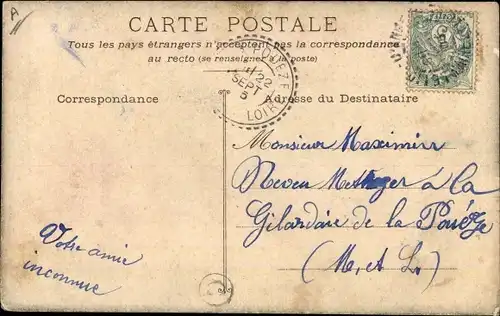 A
CARTE POSTALE
Tous les pays étrangers n'acceptent pas la correspondance
au recto (se renseigner à la poste)
POUEZE
22
SEPT
5
LOIRE
Correspondance
Adresse du Destinataire
Monsieur Maximin
Neveu à la
Gilardaie de la Pouëze
(M. et L.)
Votre amie
inconnue